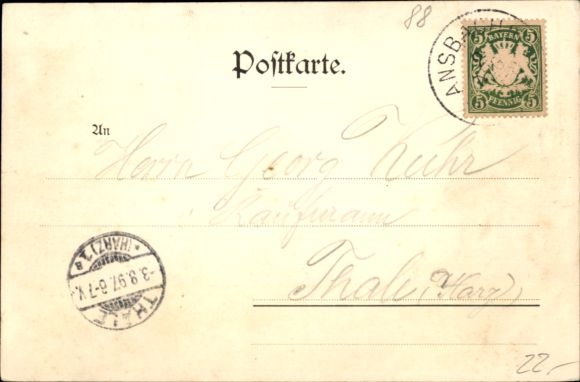 88
BAYERN
5 5
5 PFENNIG 5
ANSBACH
Postkarte.
An
Herrn Georg Kuhr
Kaufmann
Thale (Harz)
* (HARZ) 1a
-3.8.97. 6-7 V.
THALE
22,-